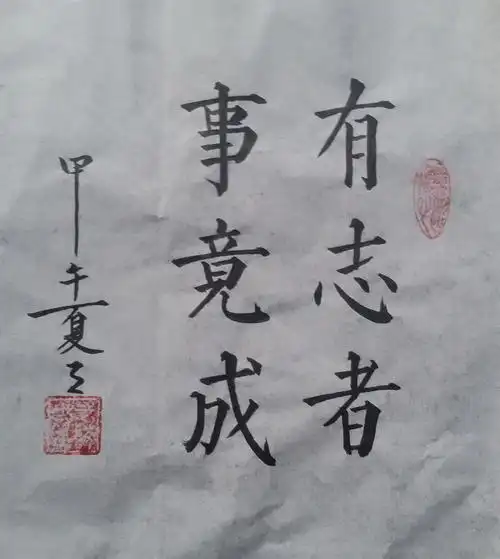 有志者
事竟成
甲午夏